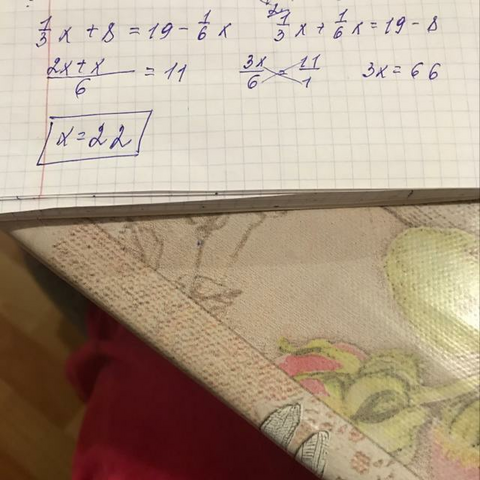 1/3 x + 8 = 19 - 1/6 x   2/ 1/3 x + 1/6 x = 19 - 8
2x + x / 6 = 11   3x/6 = 11/1   3x = 66
x = 22